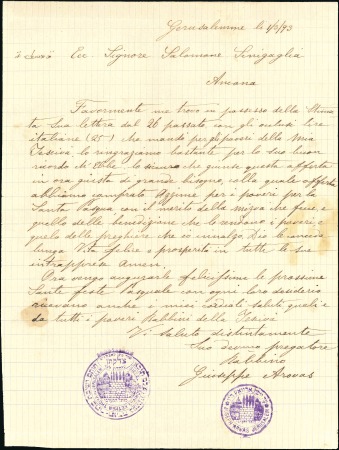 Gerusalemme li 1/3/93
Ecc. Signore Salomone Sinigaglia
Ancona
Favormente me trovo in possesso della Stima
ta Sua lettera dal 26 passato con gli acclusi lire
italiane (25) che mandò per i poveri della mia
Jescivá la ringraziamo bastante per lo suo buon
ricordo
in ora giusta di grande bisogno, colla quale offerta
abbiamo comprato Azzime per i poveri per la
Santa Pasqua con il merito della mizva che fece, e
quello delle Benedizione che le i poveri e
quello delle preghiere che io innalzo Dio le
lunga Vita felice e prosperità in tutte le sue
intrapprese Amen.
Ora vengo augurarle felicissime le prossime
Sante feste Pasquale con ogni loro desiderio
ricevano anche i miei cordiali saluti quali e
da tutti i poveri Rabbini della Jescivá
Vi saluto distintamente
Suo devmo pregatore
Rabbino
Giuseppe Arovas